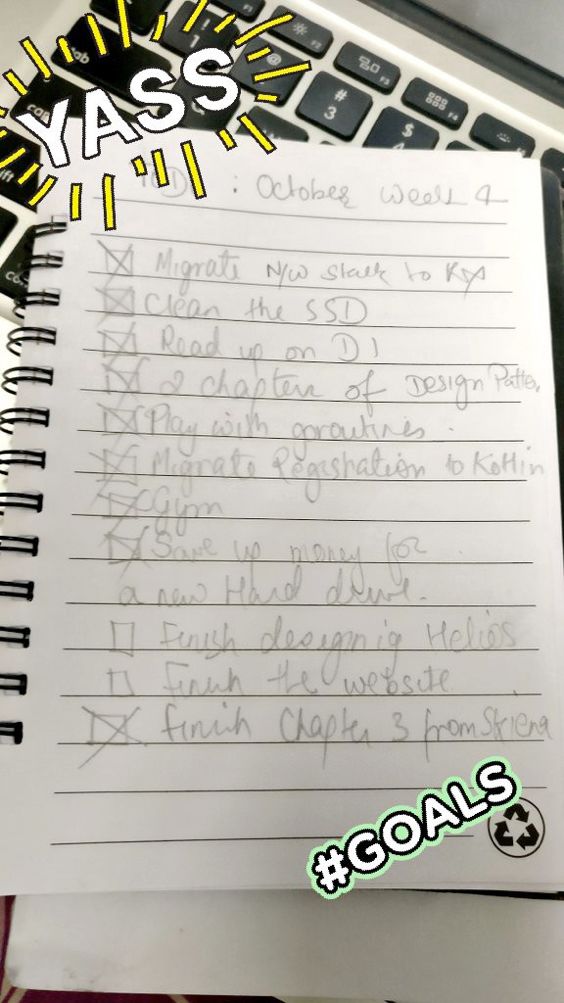 YASS
: October Week 4
Migrate N/W stack to RX
Clean the SSD
Read up on DI
2 chapters of Design Patter
Play with goroutines.
Migrate Registration to Kotlin
Gym
Save up money for
a new Hard drive.
Finish designing Helios
Finish the website
Finish Chapter 3 from Skiena
#GOALS